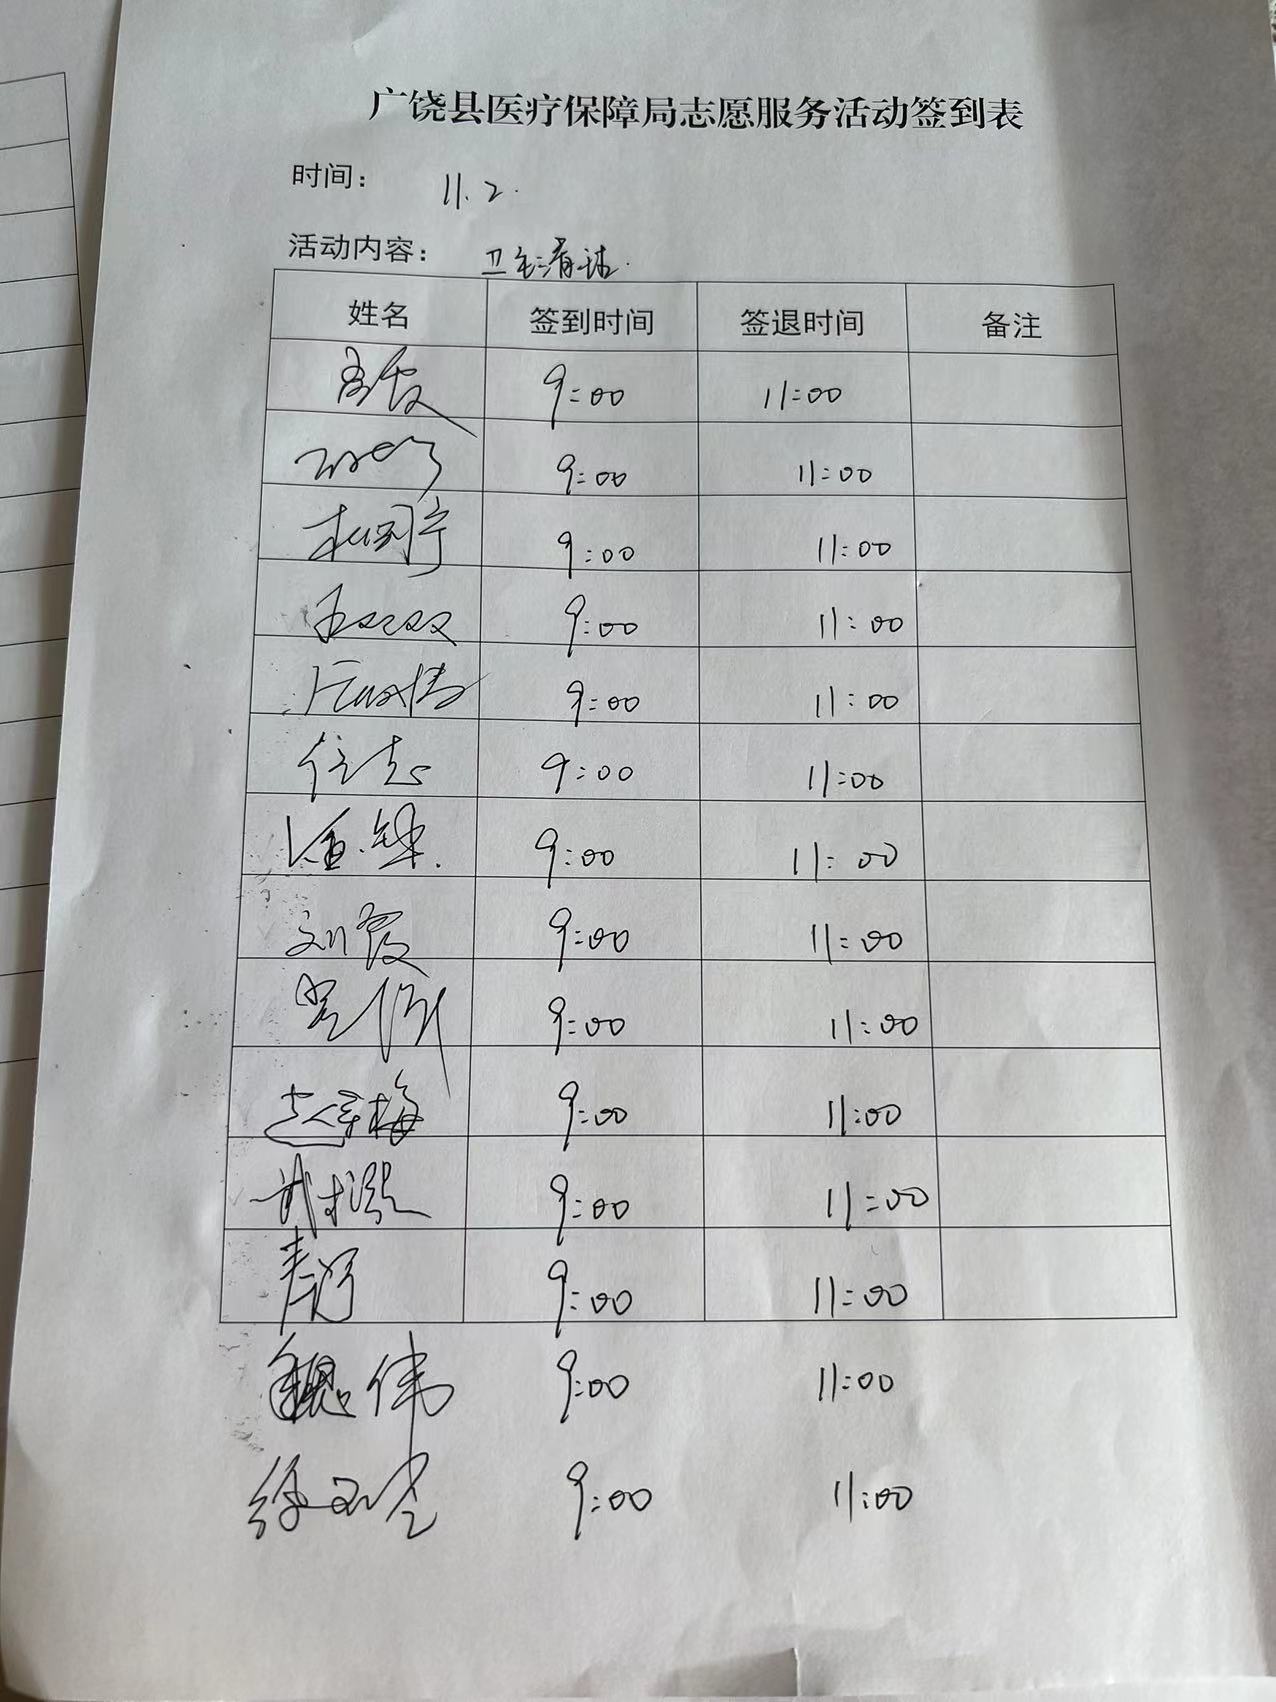 广饶县医疗保障局志愿服务活动签到表
时间： 11.2.
活动内容： 卫生清洁.
姓名 签到时间 签退时间 备注
9:00 11:00
9:00 11:00
9:00 11:00
王双双 9:00 11:00
9:00 11:00
任志 9:00 11:00
9:00 11:00
刘霞 9:00 11:00
9:00 11:00
梅 9:00 11:00
9:00 11:00
9:00 11:00
魏伟 9:00 11:00
徐 9:00 11:00